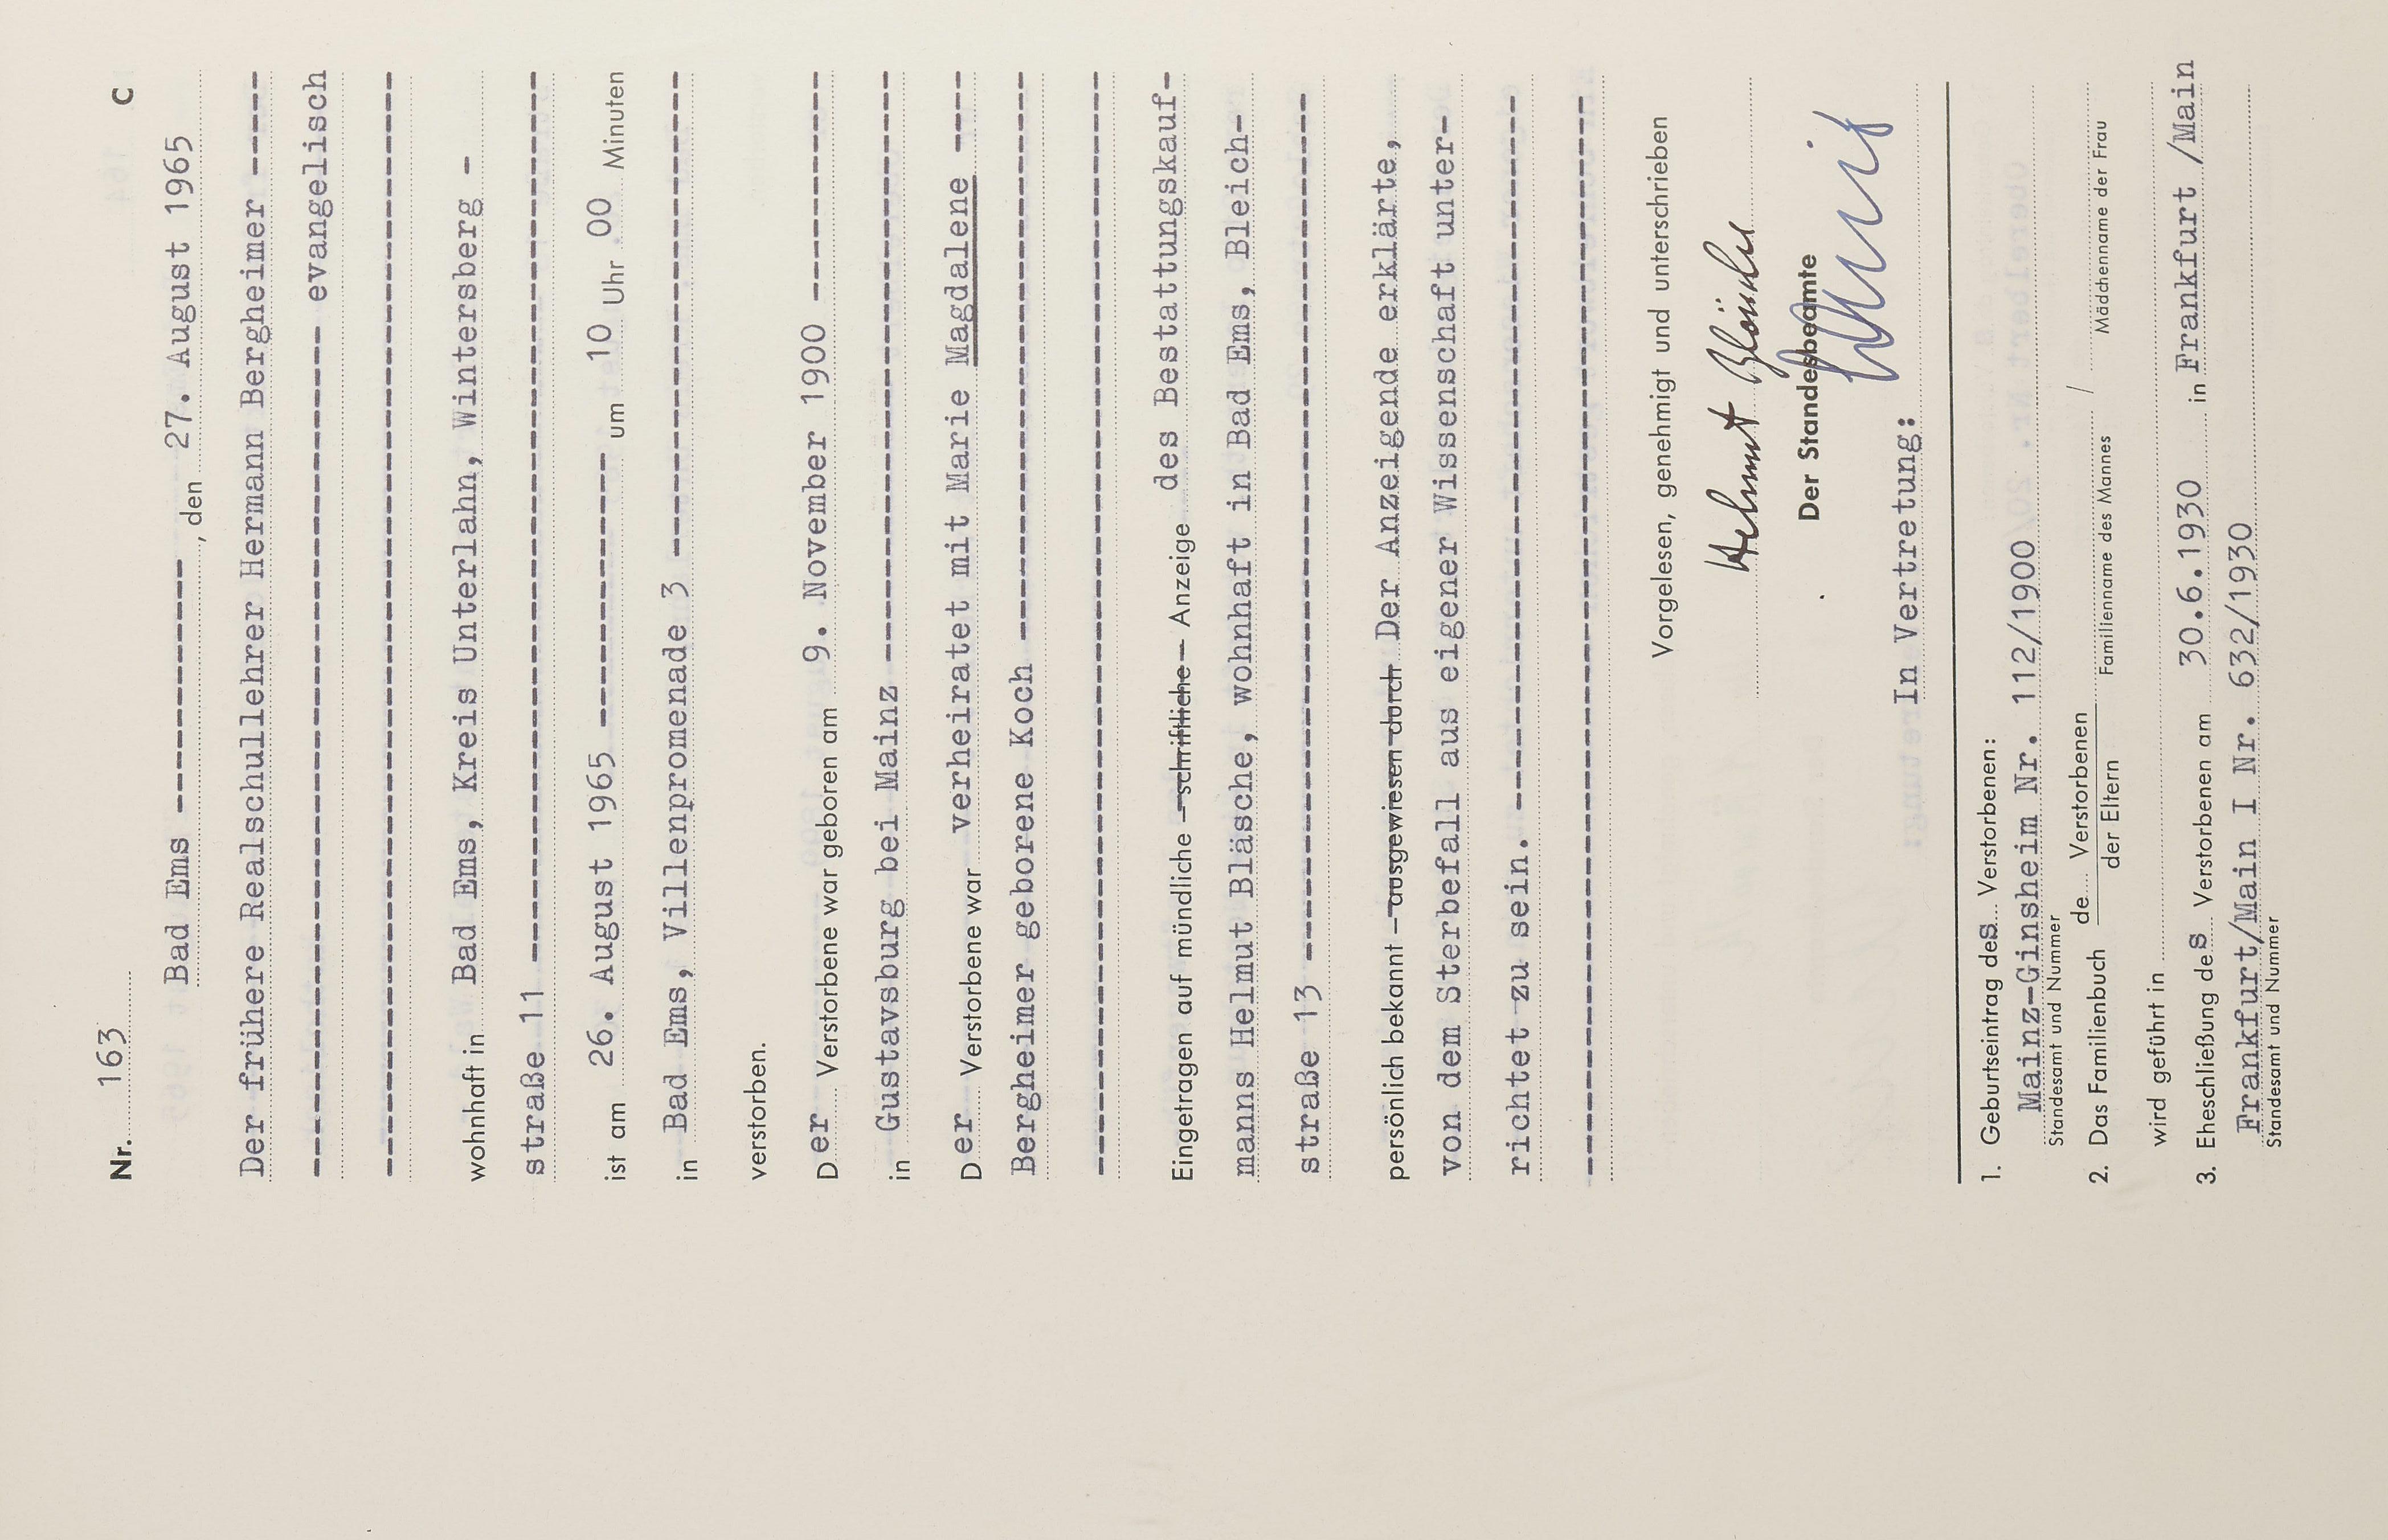 Nr. 163 C
Bad Ems ------------- , den 27. August 1965
Der frühere Realschullehrer Hermann Bergheimer -----
---------------------------------------- evangelisch
----------------------------------------------------
wohnhaft in Bad Ems, Kreis Unterlahn, Wintersberg -
straße 11 ------------------------------------------
ist am 26. August 1965 ------------- um 10 Uhr 00 Minuten
in Bad Ems, Villenpromenade 3 -----------------------
verstorben.
Der Verstorbene war geboren am 9. November 1900 -----------
in Gustavsburg bei Mainz ----------------------------
Der Verstorbene war verheiratet mit Marie Magdalene ----
Bergheimer geborene Koch ---------------------------
----------------------------------------------------
Eingetragen auf mündliche – schriftliche – Anzeige des Bestattungskauf-
manns Helmut Bläsche, wohnhaft in Bad Ems, Bleich-
straße 13 -----------------------------------------
persönlich bekannt – ausgewiesen durch Der Anzeigende erklärte,
von dem Sterbefall aus eigener Wissenschaft unter-
richtet zu sein. ----------------------------------
---------------------------------------------------
Vorgelesen, genehmigt und unterschrieben
Helmut Bläsche
Der Standesbeamte
In Vertretung:
1. Geburtseintrag des Verstorbenen:
Mainz-Ginsheim Nr. 112/1900
Standesamt und Nummer
2. Das Familienbuch de Verstorbenen / 
der Eltern Familienname des Mannes Mädchenname der Frau
wird geführt in
3. Eheschließung des Verstorbenen am 30.6.1930 in Frankfurt /Main
Frankfurt/Main I Nr. 632/1930
Standesamt und Nummer